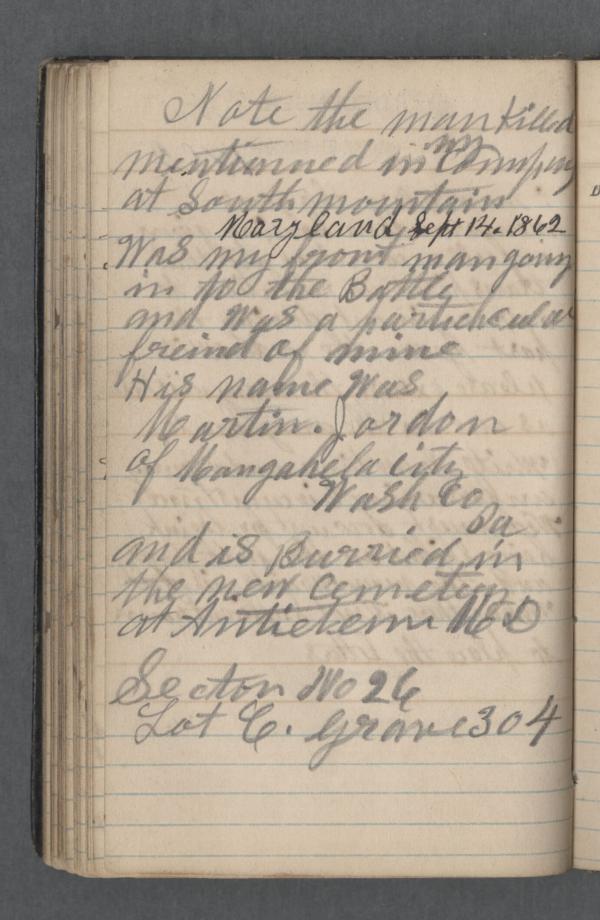 Note the man Killed
mentionned in my Compny
at South mountain
Maryland Sept 14. 1862
Was my front man going
in to the Battle
and Was a particeular
freind of mine
His name Was
Martin. Jordon
of Mangahela city
Wash Co
Pa
and is Burried in
the new cemetery
at Antietem MD
Secton No 26
Lot C. Grave 304